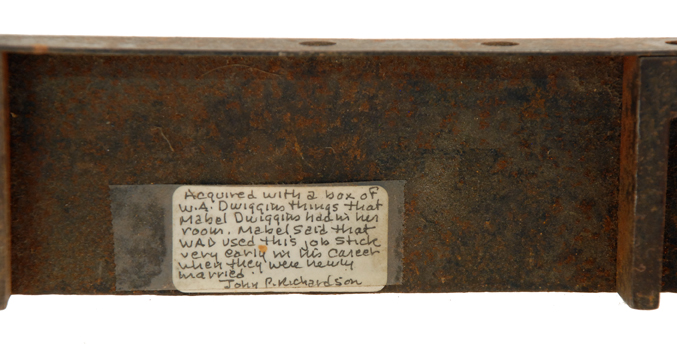 Acquired with a box of
W.A. Dwiggins things that
Mabel Dwiggins had in her
room. Mabel said that
WAD used this job stick
very early in his career
when they were newly
married.
John P. Richardson